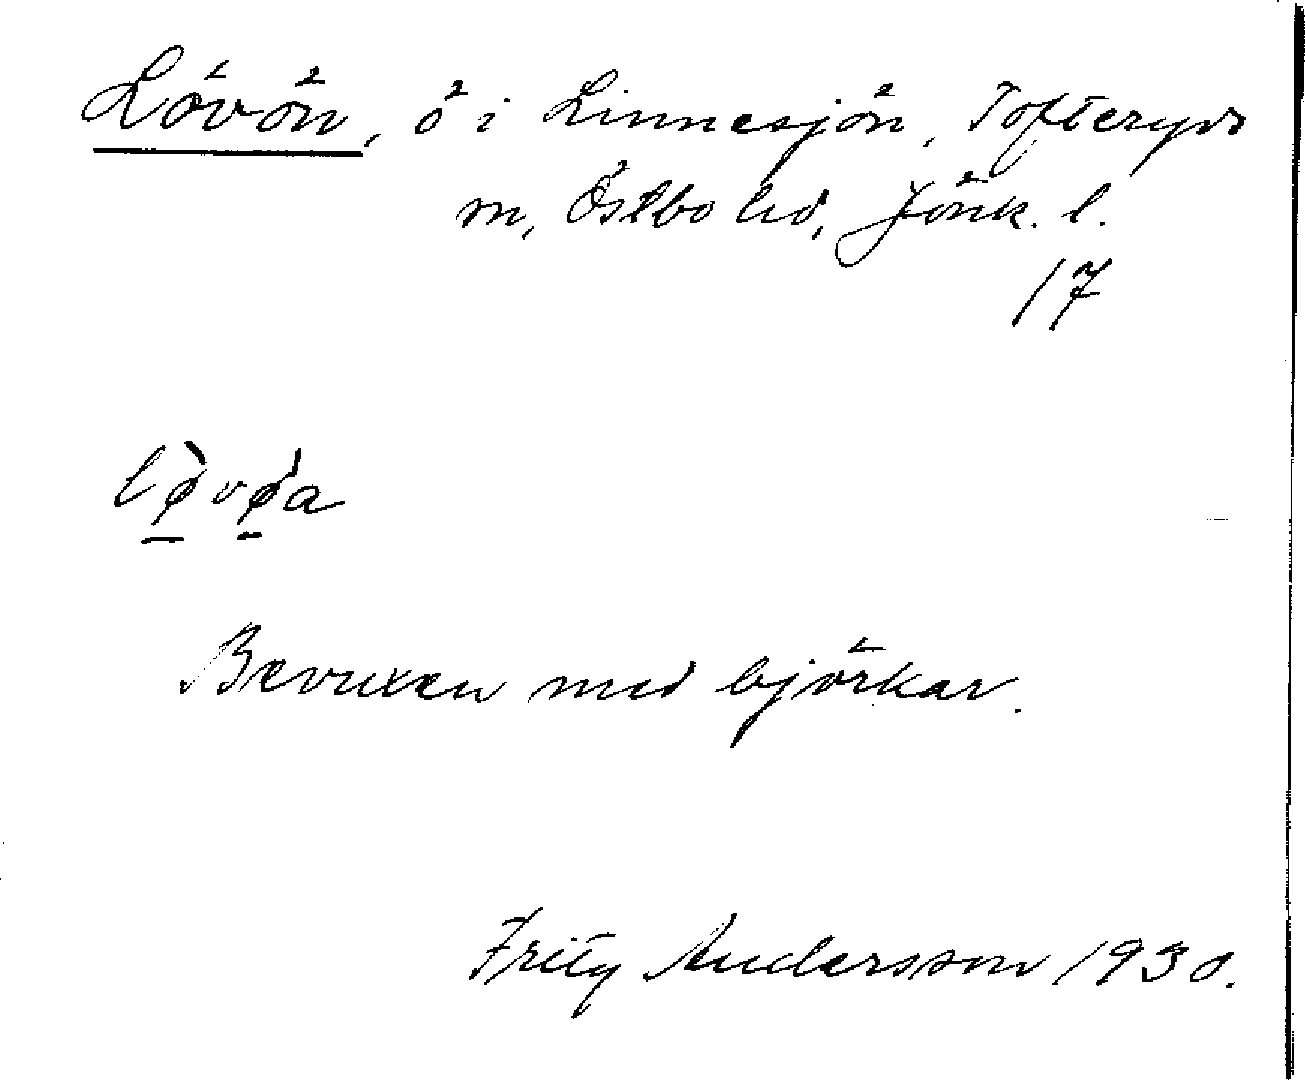 Lövön, ö i Linnesjön, Tofteryds
sn, Östbo hd, Jönk. l.
17
lø̀vø̀a
Bevuxen med björkar.
Fritz Andersson 1930.